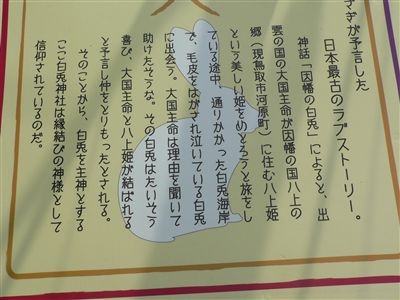 さぎが予言した
日本最古のラブストーリー。
神話「因幡の白兎」によると、出
雲の国の大国主命が因幡の国八上の
郷（現鳥取市河原町）に住む八上姫
という美しい姫をめとろうと旅をし
ている途中、通りかかった白兎海岸
で、毛皮をはがされ泣いている白兎
に出会う。大国主命は理由を聞いて
助けたそうな。その白兎はたいそう
喜び、大国主命と八上姫が結ばれる
と予言し仲をとりもったとされる。
そのことから、白兎を主神とする
ここ白兎神社は縁結びの神様として
信仰されているのだ。